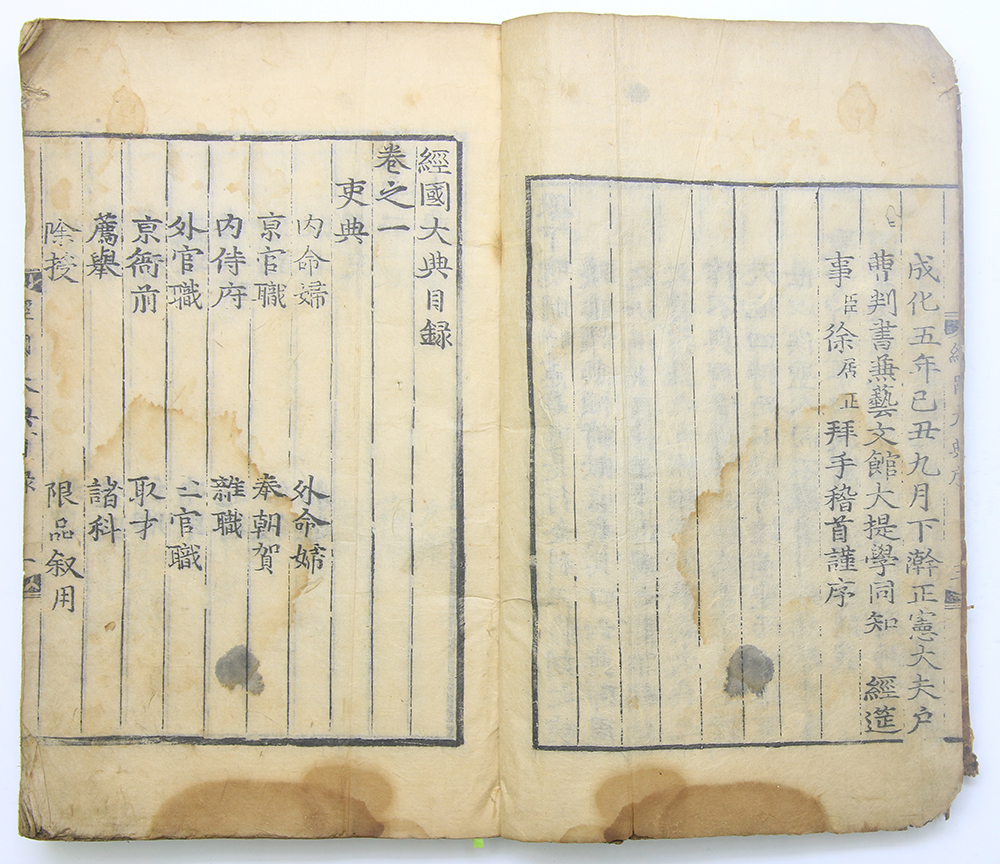 成化五年己丑九月下澣正憲大夫户
曹判書兼藝文館大提學同知 經筵
事臣徐居正拜手稽首謹序
經國大典目録
卷之一
吏典
内命婦 外命婦
亰官職 奉朝賀
内侍府 雜職
外官職 土官職
亰衙前 取才
薦舉 諸科
除授 限品叙用